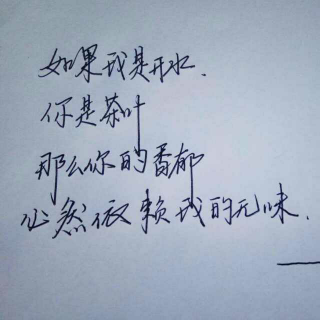 如果我是开水.
你是茶叶
那么你的香郁
必然依赖我的无味.